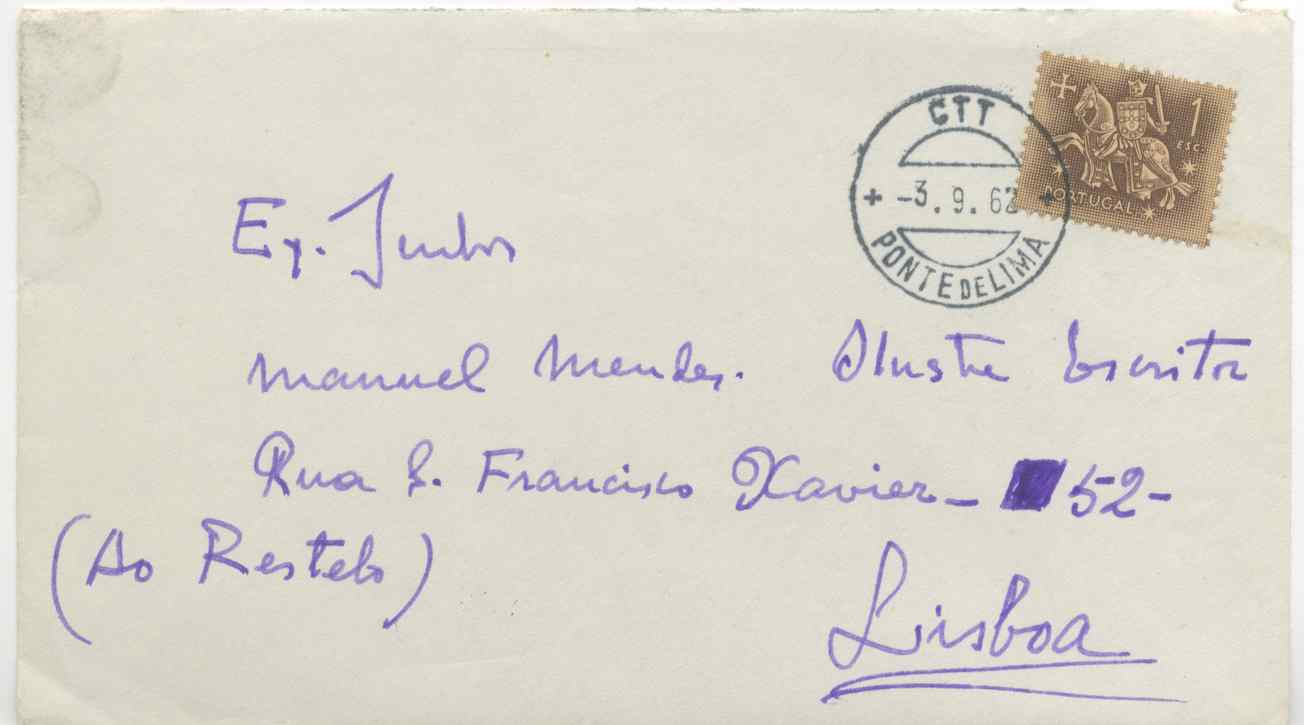 CTT
-3.9.62
PONTE DE LIMA
1
ESC.
PORTUGAL
Ex.
Manuel Mendes. Ilustre Escritor
Rua S. Francisco Xavier - 52 -
(Ao Restelo)
Lisboa